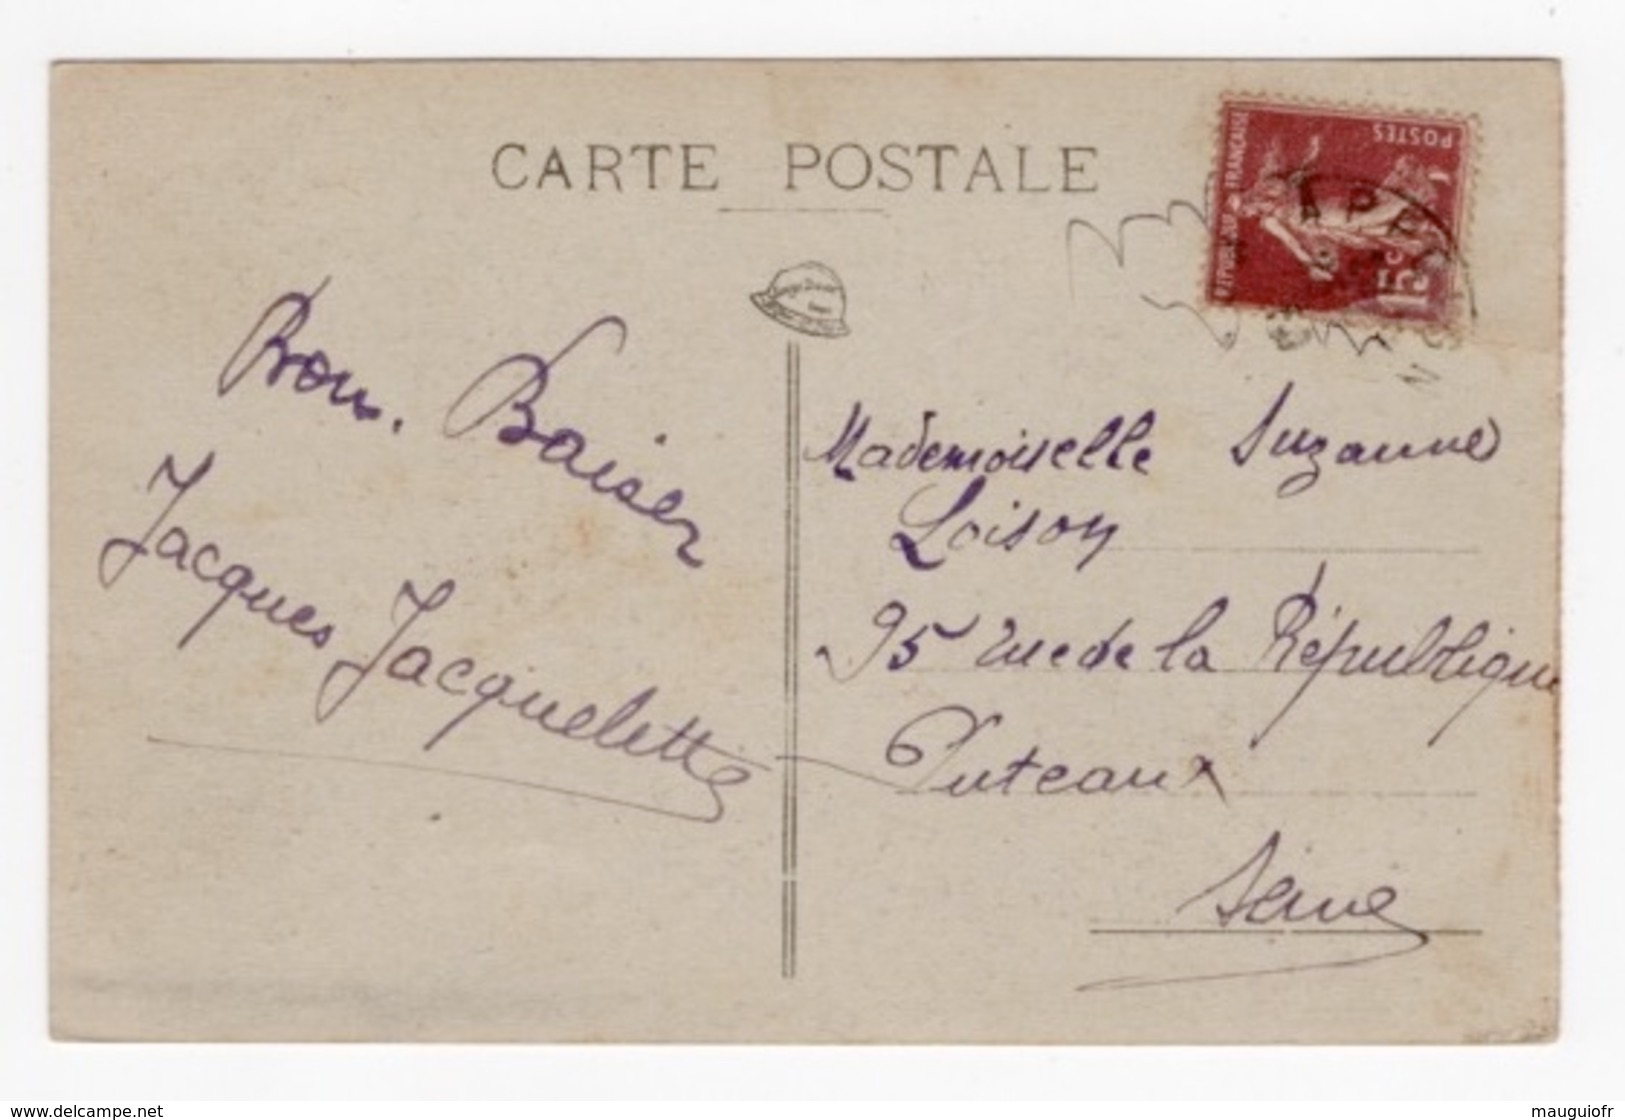 CARTE POSTALE
REPUBLIQUE FRANÇAISE
POSTES
15
Bons. Baiser
Jacques Jacquelette
Mademoiselle Suzanne
Loison
95 rue de la République
Puteaux
Seine
www.delcampe.net
mauguiofr